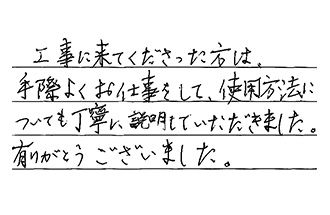 工事に来てくださった方は、
手際よくお仕事をして、使用方法に
ついても丁寧に説明していただきました。
有りがとうございました。